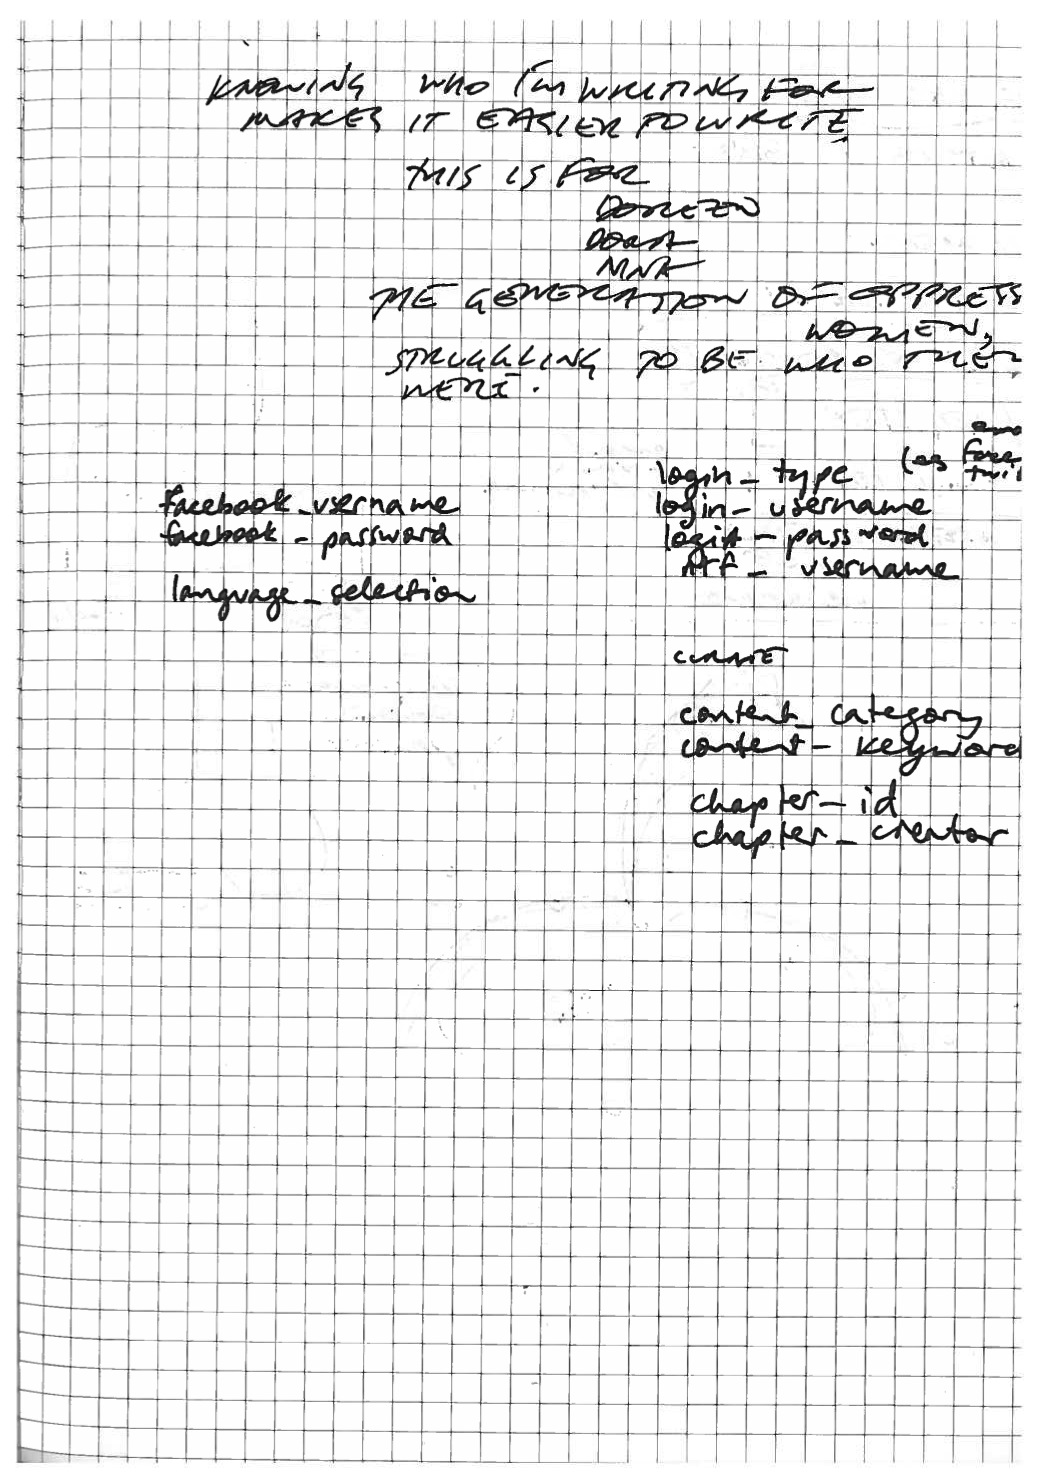 KNOWING WHO I'M WRITING FOR
MAKES IT EASIER TO WRITE.
THIS IS FOR
DOREEN
DORA
THE GENERATION OF OPPRESS
WOMEN,
STRUGGLING TO BE WHO THEY
WERE.
(eg face
twit
login_type
facebook_username
login_username
facebook_password
login_password
username
language_selection
CURATE
content_category
content_keyword
chapter_id
chapter_creator